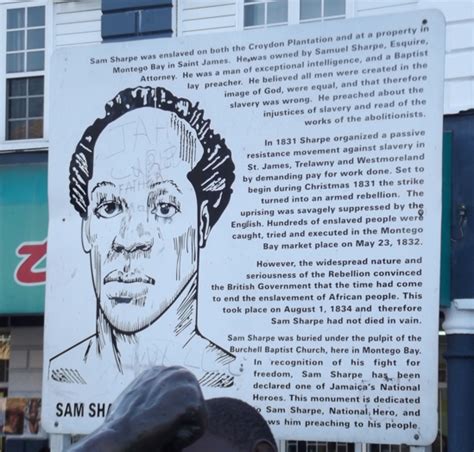 Sam Sharpe was enslaved on both the Croydon Plantation and at a property in
Montego Bay in Saint James. He was owned by Samuel Sharpe, Esquire,
Attorney. He was a man of exceptional intelligence, and a Baptist
lay preacher. He believed all men were created in the
image of God, were equal, and that therefore
slavery was wrong. He preached about the
injustices of slavery and read of the
works of the abolitionists.
In 1831 Sharpe organized a passive
resistance movement against slavery in
St. James, Trelawny and Westmoreland
by demanding pay for work done. Set to
begin during Christmas 1831 the strike
turned into an armed rebellion. The
uprising was savagely suppressed by the
English. Hundreds of enslaved people were
caught, tried and executed in the Montego
Bay market place on May 23, 1832.
However, the widespread nature and
seriousness of the Rebellion convinced
the British Government that the time had come
to end the enslavement of African people. This
took place on August 1, 1834 and therefore
Sam Sharpe had not died in vain.
Sam Sharpe was buried under the pulpit of the
Burchell Baptist Church, here in Montego Bay.
In recognition of his fight for
freedom, Sam Sharpe has been
declared one of Jamaica's National
Heroes. This monument is dedicated
Sam Sharpe, National Hero, and
him preaching to his people.
SAM